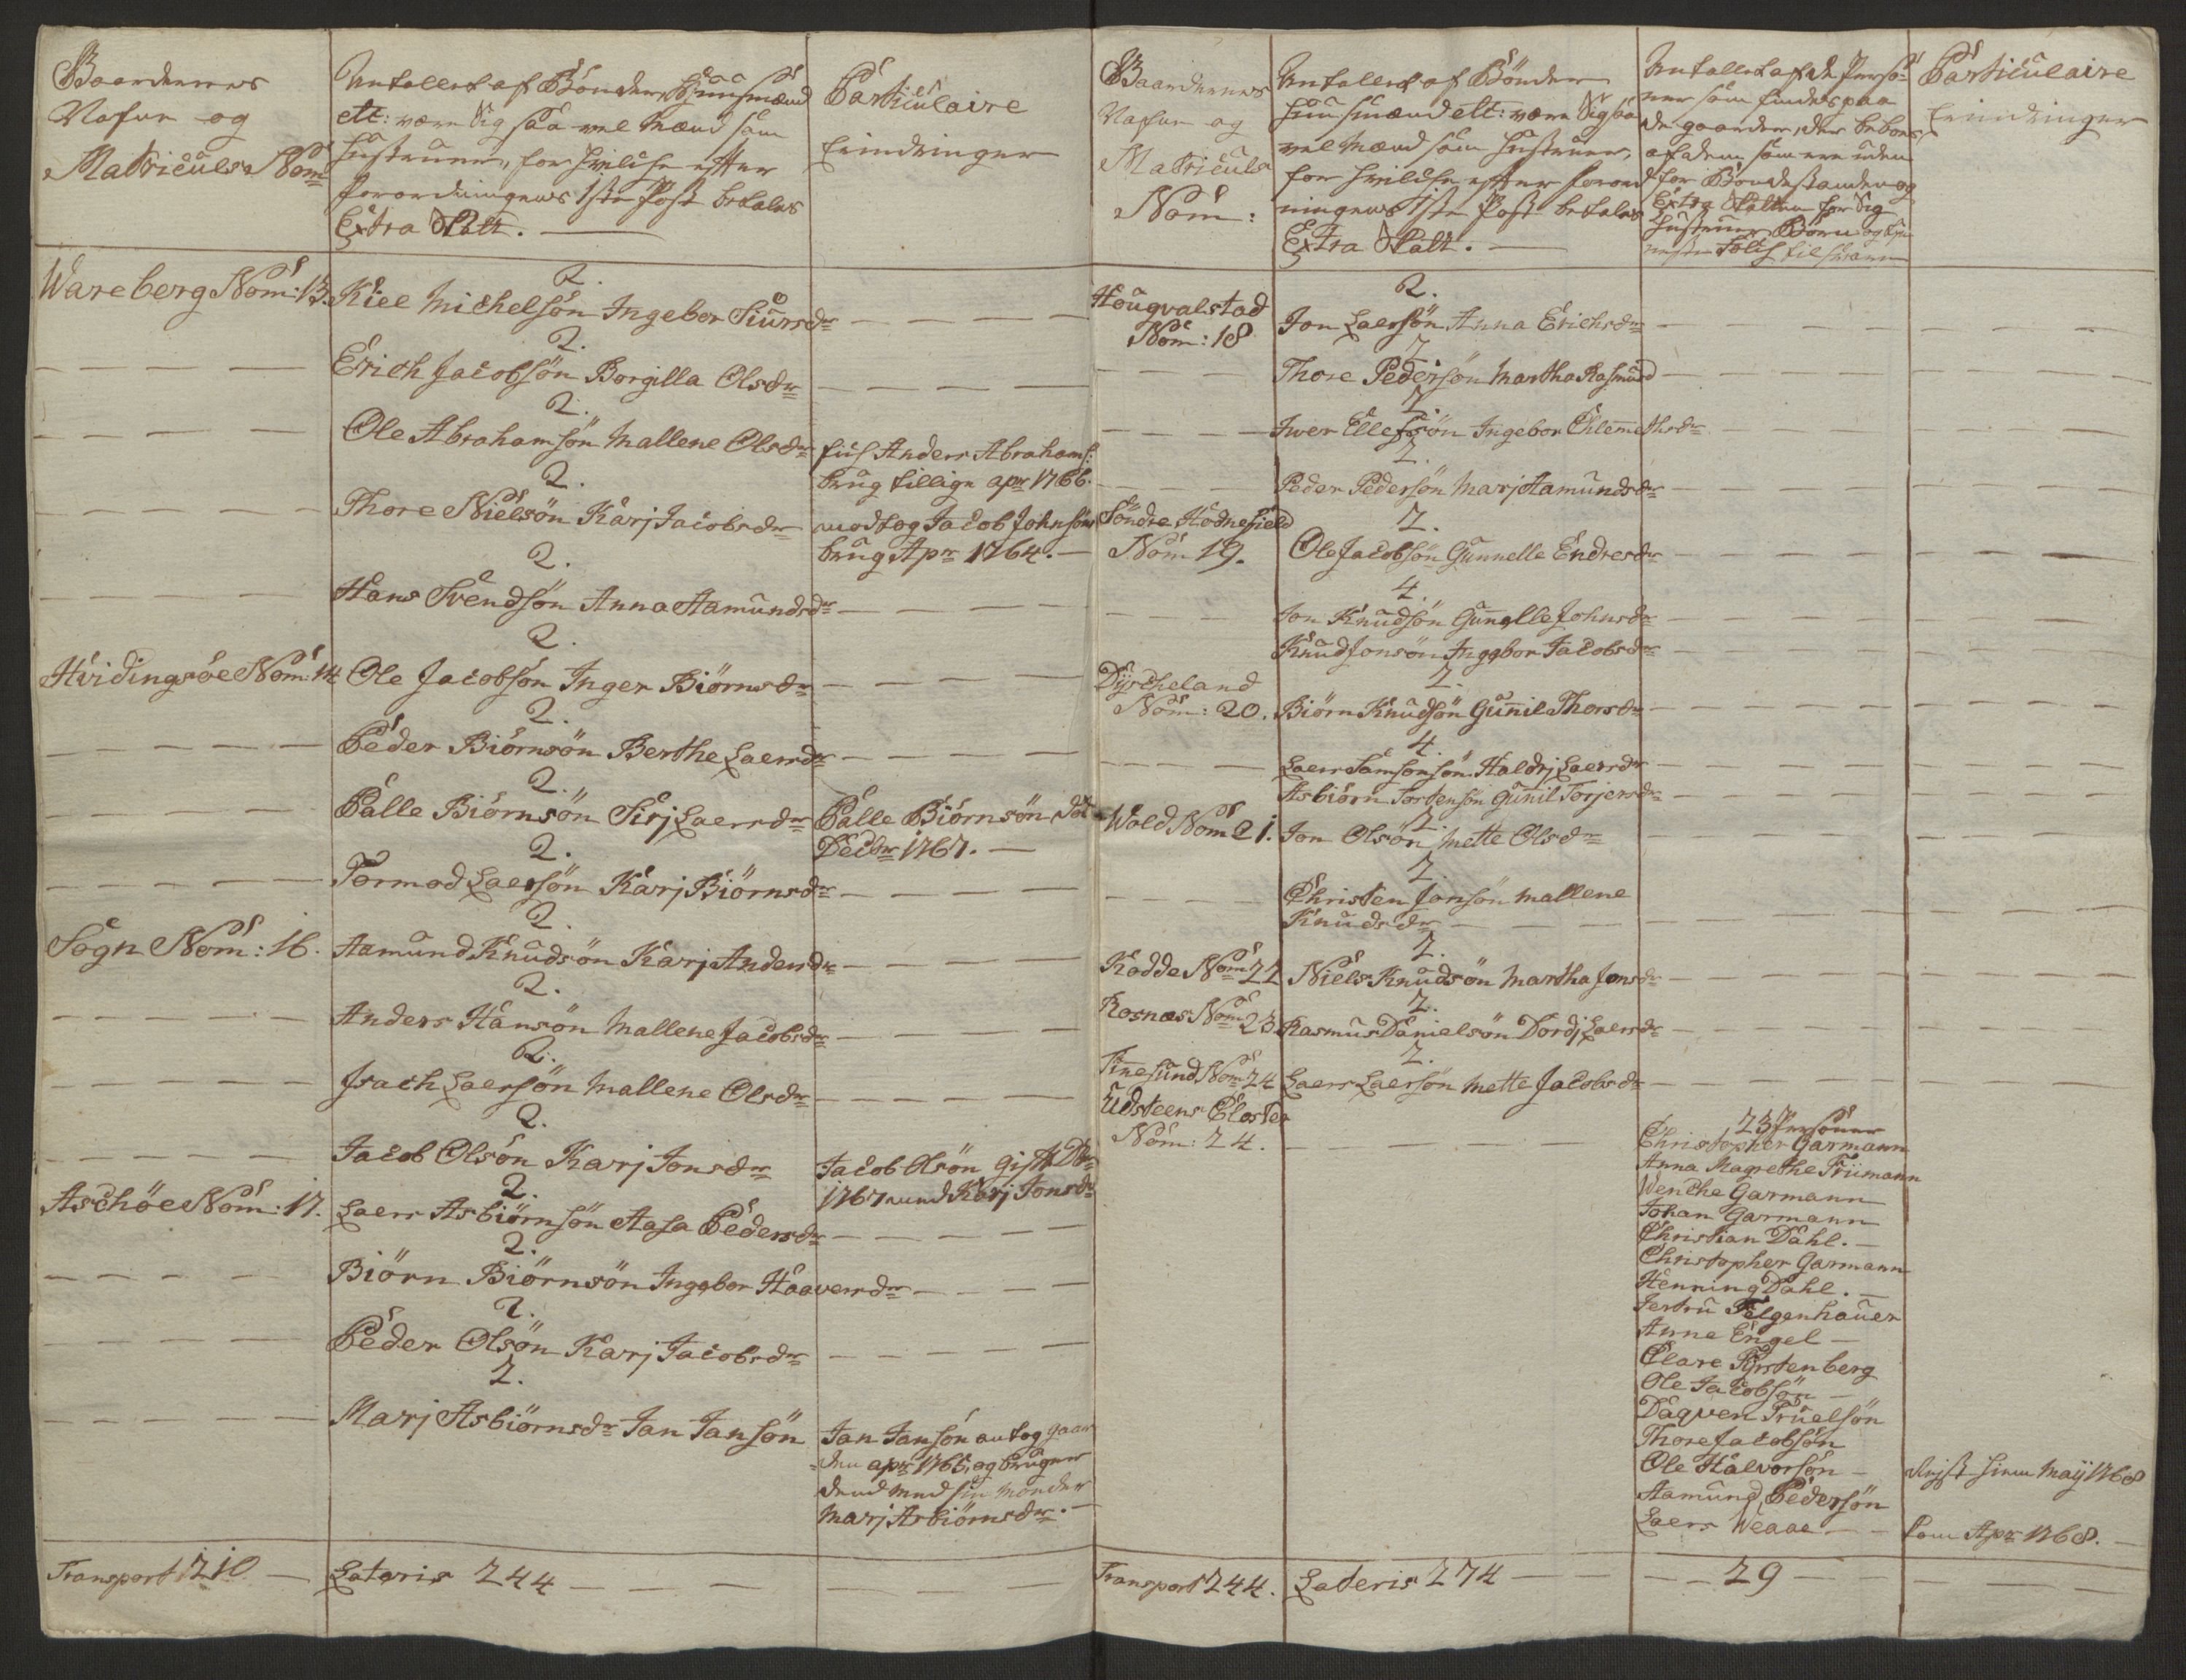 Gaardernes
Nafne og
Matriculs Nom
Antallet af Bönder, Huusmænd
ett: være Sig saa vel Mænd som
Hustruer, for hvilche effter
forordningens 1ste Post betales
Extra Skatt.
Particulaire
Erindringer
Wareberg Nom: 13.
2.
Kiel Michelsön Ingebor Siursdr
2.
Erich Jacobsön Borgilla Olsdr
2.
Ole Abrahamsön Mallene Olsdr
fich Anders Abrahams:
brug tillige apr 1766.
2.
Thore Nielsön Karj Jacobsdr
modtog Jacob Johnsöns
brug Apr 1764.
2.
Hans Svendsön Anna Aamundsdr
2.
Hvidingsöe Nom: 14
Ole Jacobsön Inger Biörnsdr
2.
Peder Biörnsön Berthe Laersdr
2.
Palle Biörnsön Sirj Laersdr
Palle Biörnsön död
Decbr 1767.
2.
Tormod Laersön Karj Biörnsdr
2.
Sogn Nom: 16.
Aamund Knudsön Karj Andersdr
2.
Anders Hansön Mallene Jacobsdr
2.
Isach Laersön Mallene Olsdr
2.
Jacob Olsön Karj Jonsdr
Jacob Olsön gift Dbr
1767 med Karj Jonsdr
2.
Aschöe Nom: 17.
Laers Asbiörnsön Aasa Pedersdr
2.
Biörn Biörnsön Inggbor Haaversdr
2.
Peder Olsön Karj Jacobsdr
2.
Marj Asbiörnsdr Jan Jansön
Jan Jansön antog gaar-
den apr 1765, og bruger
dend med sin Moder
Marj Asbiörnsdr.
Transport 210
Lateris 244
Gaardernes
Nafne og
Matriculs
Nom:
Antallet af Bönder
Huusmænd ett: være Sig saa
vel Mænd som Hustruer,
for hvilche effter forord
ningens 1ste Post betales
Extra Skatt.
Antallet af de Perso-
ner som findes paa
de gaarder, der beboes
af dem, som ere uden
for Bondestanden og
Extra Skatten for Sig
Hustruer Börn og tje-
neste Folch tilsvarer
Particulaire
Erindringer
2.
Hougvalstad
Nom: 18
Jon Laersön Anna Erichsdr
2
Thore Pedersön Martha Rasmusd
2.
Iver Ellefsön Ingebor Chlemethsdr
2.
Peder Pedersön Marj Aamundsdr
2.
Söndre Hodnefield
Nom 19.
Ole Jacobsön Gunnelle Endresdr
4.
Jon Knudsön Gunnelle Johnsdr
Knud Jonsön Inggbor Jacobsdr
2.
Dyscheland
Nom: 20.
Biörn Knudsön Gunnil Thorsdr
4.
Laers Samsonsön Haldrj Laersdr
Asbiörn Tortensön Gunil Torjersdr
2.
Wold Nom 21.
Jon Olsön Mette Olsdr
2.
Christen Jonsön Mallene
Knudsdr
2.
Kodde Nom 22
Niels Knudsön Martha Jonsdr
2.
Rosnæs Nom 23
Rasmus Danielsön Dordj Laersdr
2.
Finesund Nom 24
Laers Laersön Mette Jacobsdr
Udsteens Closter
Nom: 24.
23 Personer
Christopher Garmann
Anna Magrethe Friimann
Wenche Garmann
Johan Garmann
Christian Dahl.
Christopher Garmann
Henning Dahl.
Jertru Felgenhauer
Anne Engel
Clare Fyrstenberg
Ole Jacobsön
Dagven Truelsön
Thore Jacobsön
Ole Halvorsön
Rejst hiem Maij 1768
Aamund Pedersön
Laers Weaae
kom Apr 1768.
Transport 244.
Lateris 274
29